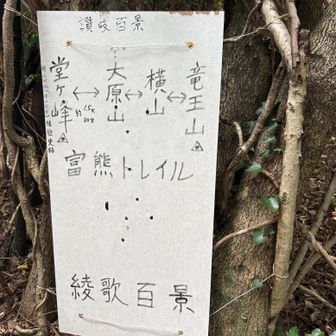 讃岐百景
堂ヶ峰 ↔ 大原山 ↔ 横山 ↔ 竜王山
富熊トレイル
綾歌百景